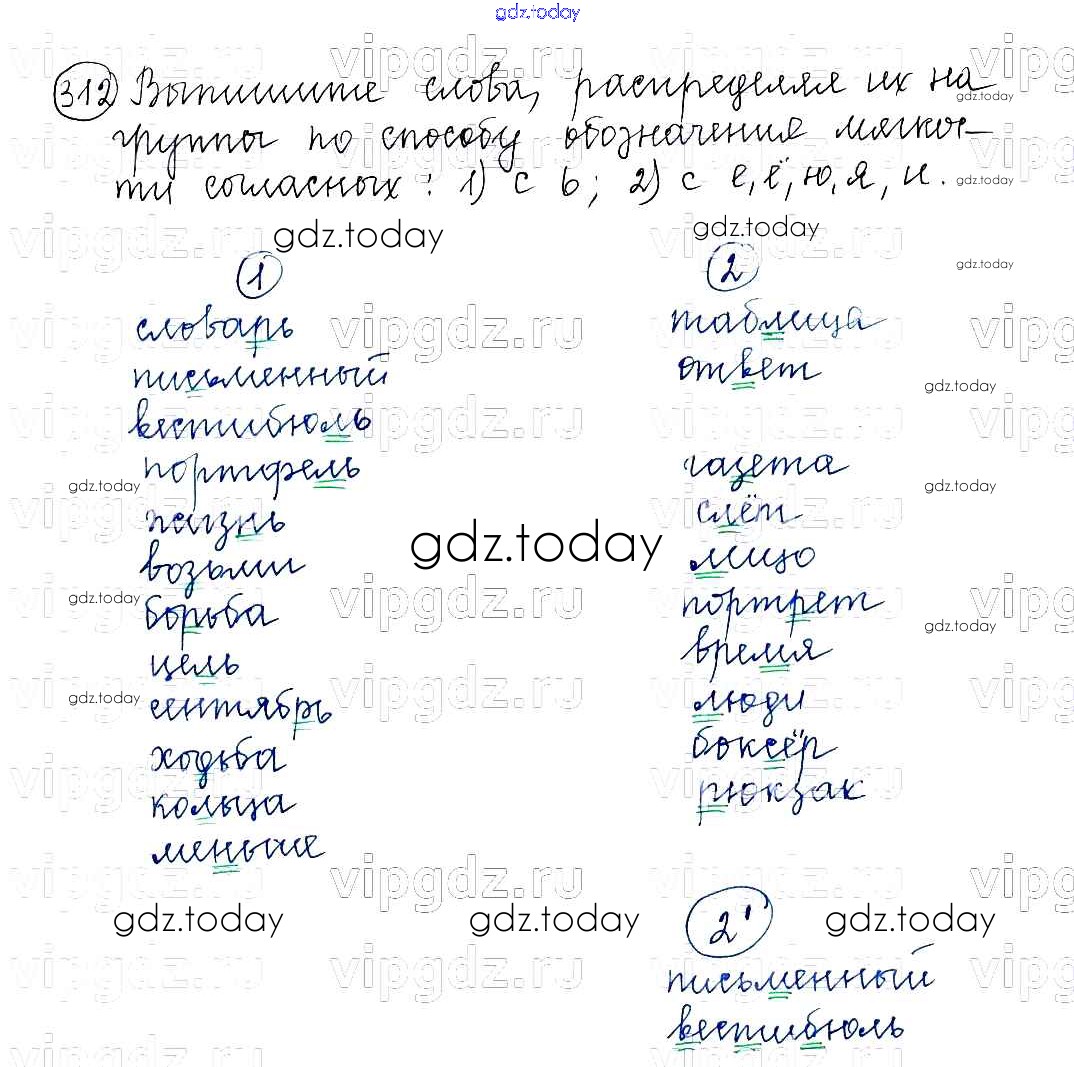 gdz.today
312 Выпишите слова, распределяя их на
группы по способу обозначения мягкос-
ти согласных: 1) с ь; 2) с е, ё, ю, я, и.
gdz.today
gdz.today
gdz.today
gdz.today
1
2
gdz.today
словарь
таблица
письменный
ответ
gdz.today
вестибюль
портфель
газета
gdz.today
gdz.today
жизнь
слёт
gdz.today
возьми
лицо
gdz.today
борьба
портрет
gdz.today
цель
время
gdz.today
сентябрь
люди
ходьба
боксёр
кольца
рюкзак
меньше
gdz.today
gdz.today
gdz.today
2'
письменный
вестибюль
vipgdz.ru